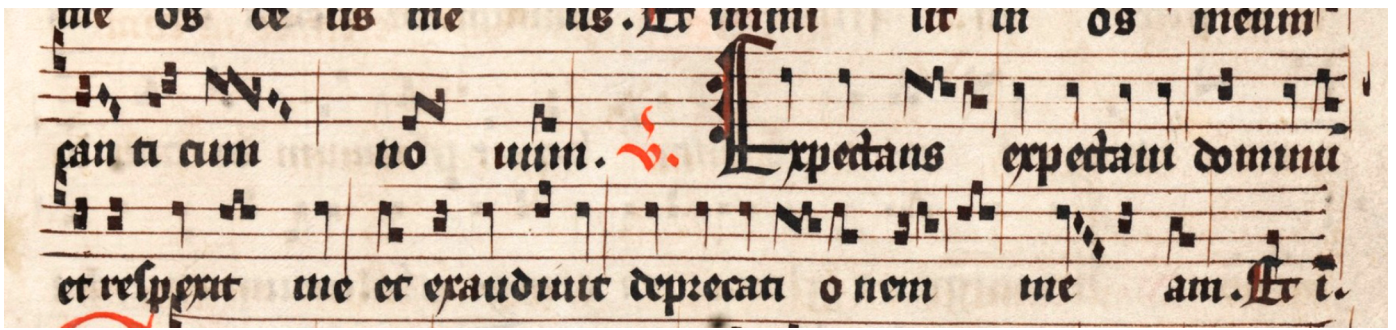 me os de us me us. Et inmi sit in os meum
can ti cum no uum. v. Expectans expectaui dominu
et respexit me et exaudiuit deprecati o nem me am. Et i.